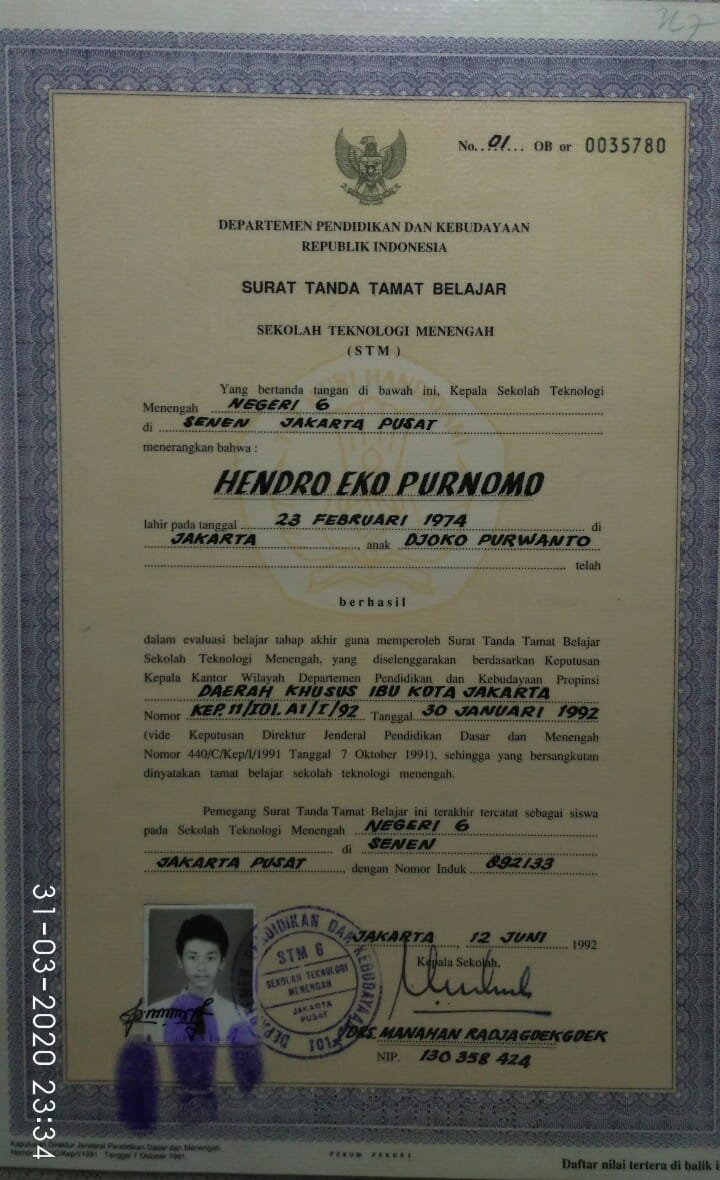 No. 01 OB or 0035780
DEPARTEMEN PENDIDIKAN DAN KEBUDAYAAN
REPUBLIK INDONESIA
SURAT TANDA TAMAT BELAJAR
SEKOLAH TEKNOLOGI MENENGAH
( STM )
Yang bertanda tangan di bawah ini, Kepala Sekolah Teknologi
Menengah NEGERI 6
di SENEN JAKARTA PUSAT
menerangkan bahwa :
HENDRO EKO PURNOMO
lahir pada tanggal 23 FEBRUARI 1974 di
JAKARTA, anak DJOKO PURWANTO
telah
berhasil
dalam evaluasi belajar tahap akhir guna memperoleh Surat Tanda Tamat Belajar
Sekolah Teknologi Menengah, yang diselenggarakan berdasarkan Keputusan
Kepala Kantor Wilayah Departemen Pendidikan dan Kebudayaan Propinsi
DAERAH KHUSUS IBU KOTA JAKARTA
Nomor KEP. 11/I01. A1/I/92 Tanggal 30 JANUARI 1992
(vide Keputusan Direktur Jenderal Pendidikan Dasar dan Menengah
Nomor 440/C/Kep/I/1991 Tanggal 7 Oktober 1991), sehingga yang bersangkutan
dinyatakan tamat belajar sekolah teknologi menengah.
Pemegang Surat Tanda Tamat Belajar ini terakhir tercatat sebagai siswa
pada Sekolah Teknologi Menengah NEGERI 6
di SENEN
JAKARTA PUSAT, dengan Nomor Induk 892133
JAKARTA, 12 JUNI 1992
Kepala Sekolah,
STM 6
SEKOLAH TEKNOLOGI
MENENGAH
JAKARTA
PUSAT
DRS. MANAHAN RADJAGOEKGOEK
NIP. 130 358 424
31-03-2020 23:34
Keputusan Direktur Jenderal Pendidikan Dasar dan Menengah
Tanggal 7 Oktober 1991
PERUM PERURI
Daftar nilai tertera di balik